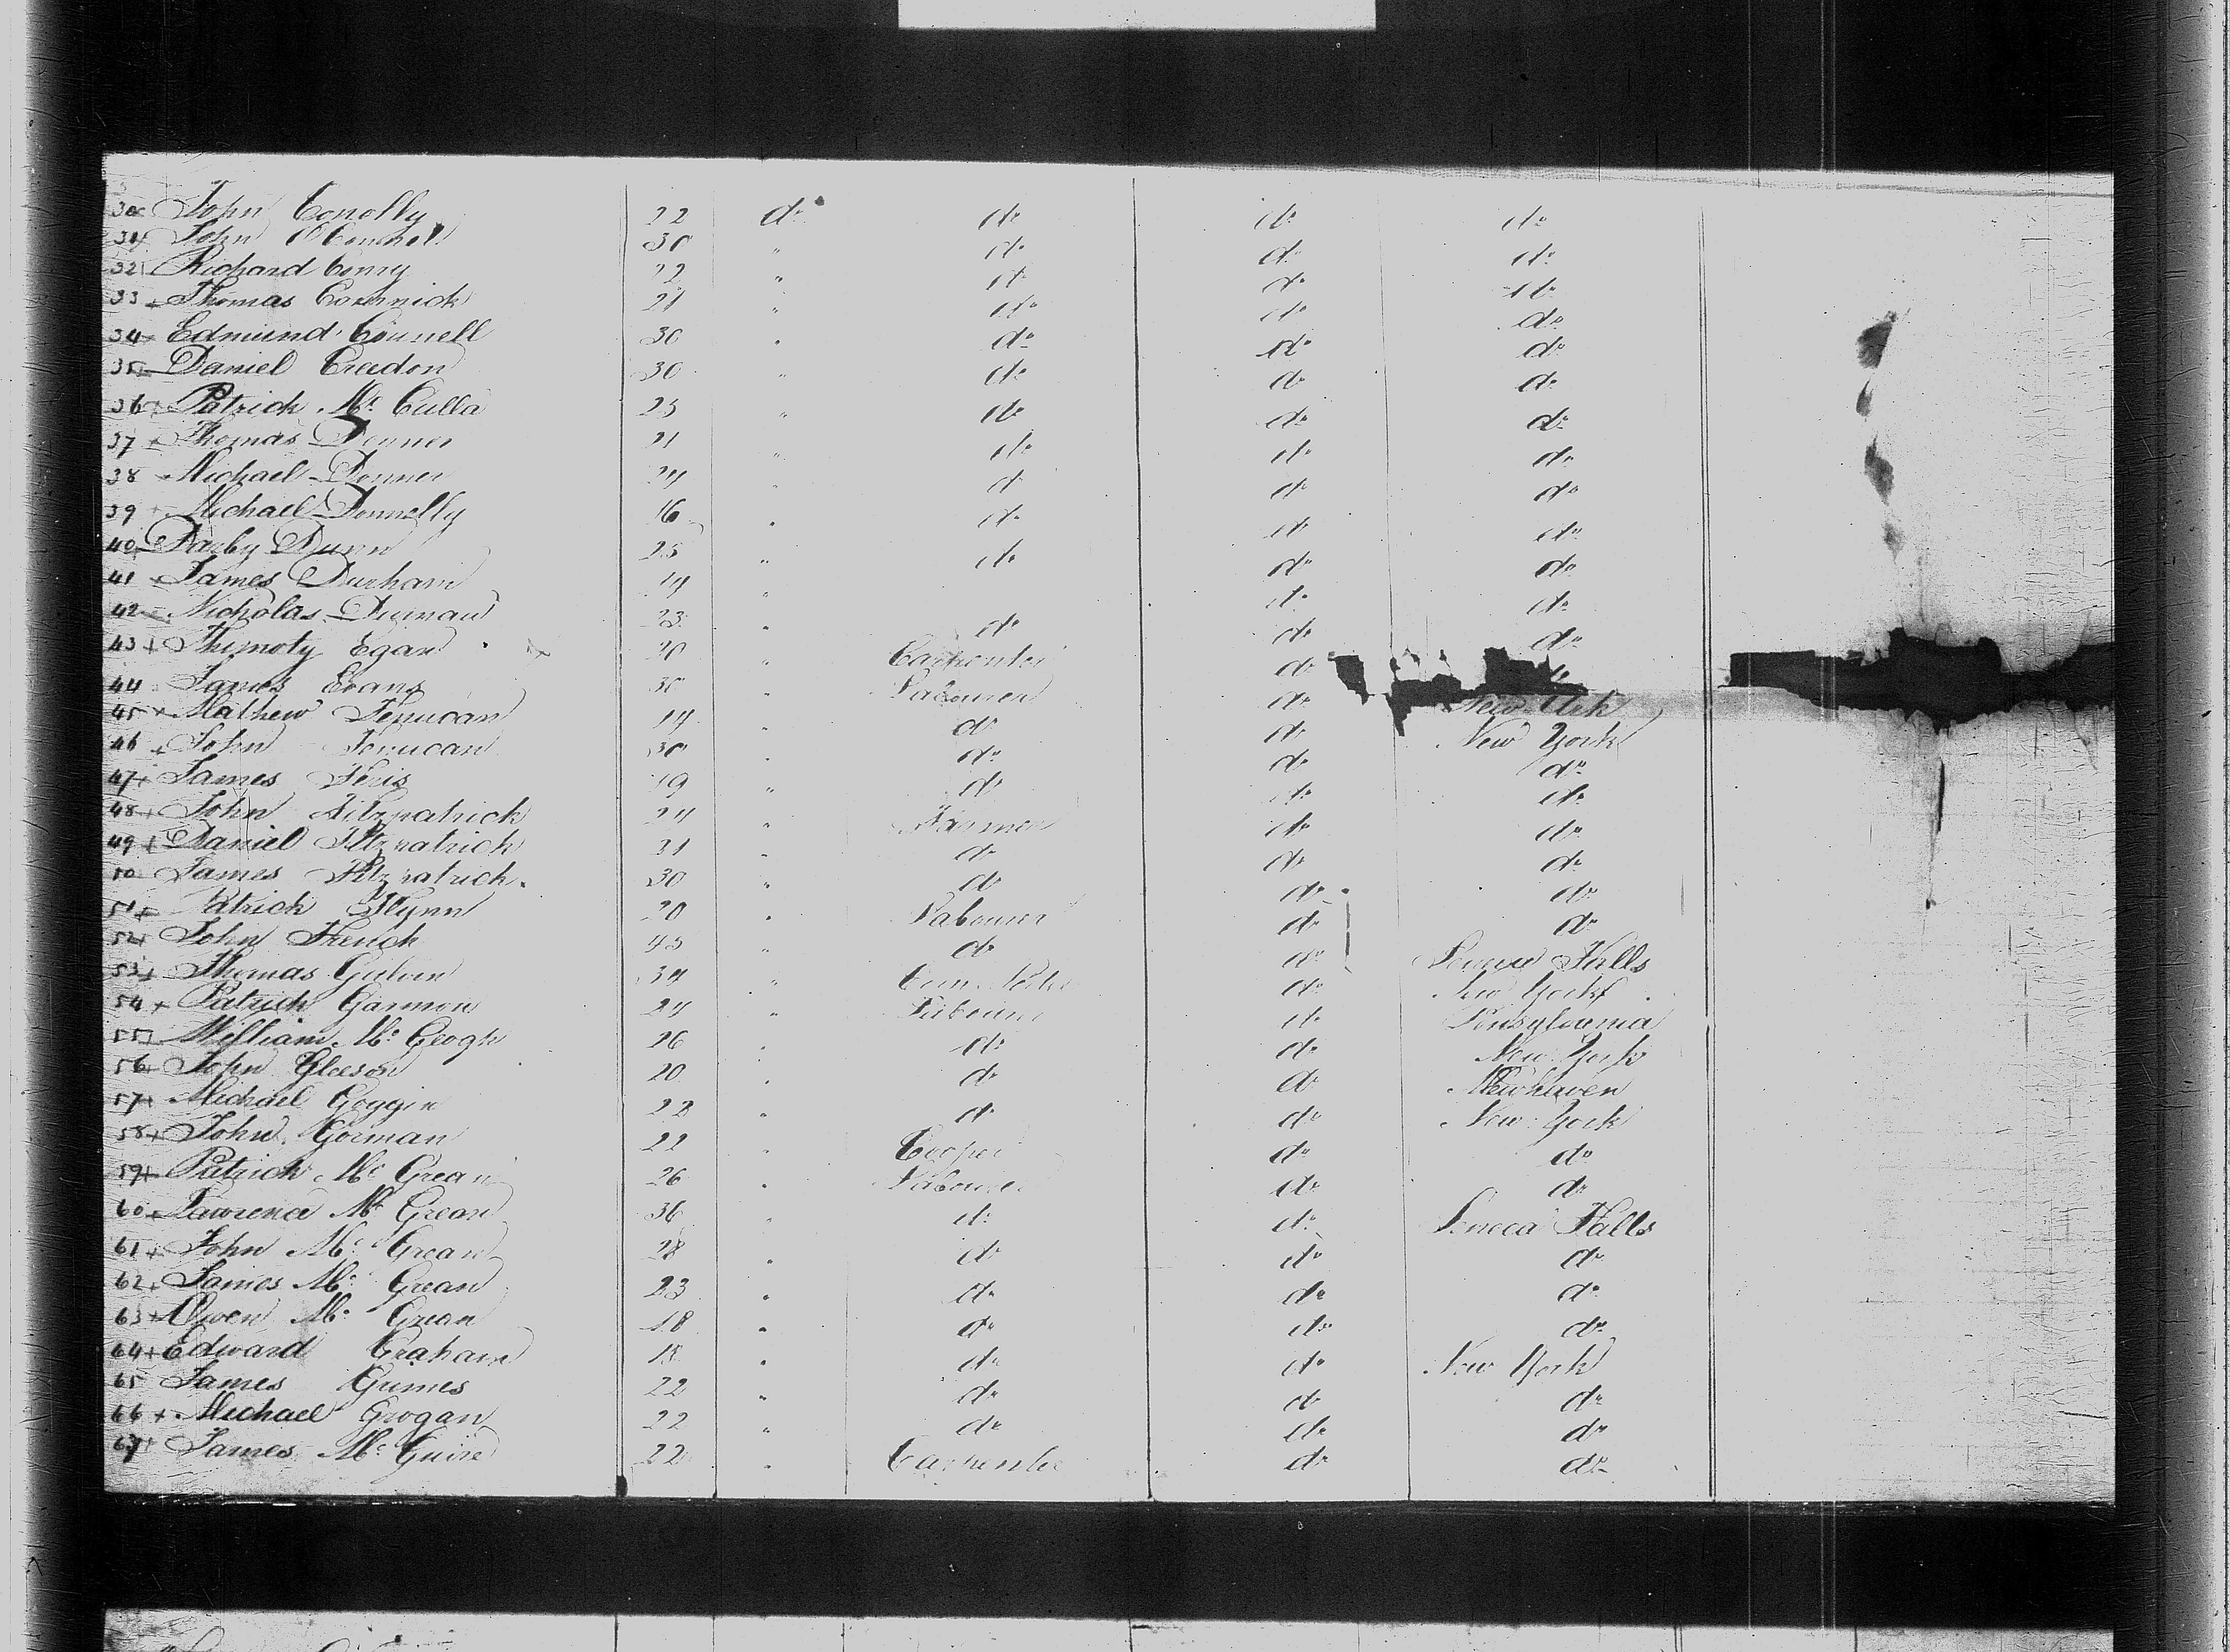 30 John Conolly 22 do do do do
31 John O'Connell 30 " do do do
32 Richard Conry 22 " do do do
33 + Thomas Cormick 21 " do do do
34 + Edmund Connell 30 " do do do
35 + Daniel Creedon 30 " do do do
36 + Patrick Mc Culla 25 " do do do
37 + Thomas Donner 21 " do do do
38 Michael Donner 24 " do do do
39 + Michael Donnelly 16 " do do do
40 Darby Dunn 25 " do do do
41 + James Durham 14 " do do
42 Nicholas 23 " do do do
43 + Thimoty Egan 20 " Carpenter do
44 James Evans 30 " Labourer do New York
45 + Mathew Finucan 14 " do do New York
46 + John Finucan 30 " do do do
47 + James 19 " do do do
48 + John Fitzpatrick 24 " Farmer do do
49 + Daniel Fitzpatrick 31 " do do do
50 James Fitzpatrick 30 " do do do
51 + Patrick Flynn 20 " Labourer do do
52 + John French 45 " do do Seneca Falls
53 + Thomas Galvin 34 " do New York
54 + Patrick Gannon 24 " Labourer do Pensylvania
55 William Mc Geogh 26 " do do New York
56 + John Gleeson 20 " do do Newhaven
57 + Michael Goggin 22 " do do New York
58 + John Gorman 22 " Cooper do do
59 + Patrick Mc Grean 26 " Labourer do do
60 + Lawrence Mc Grean 36 " do do Seneca Falls
61 + John Mc Grean 28 " do do do
62 + James Mc Grean 23 " do do do
63 + Owen Mc Grean 18 " do do do
64 + Edward Graham 18 " do do New York
65 James Grimes 22 " do do do
66 + Michael Grogan 22 " do do do
67 James Mc Guire 22 " Carpenter do do